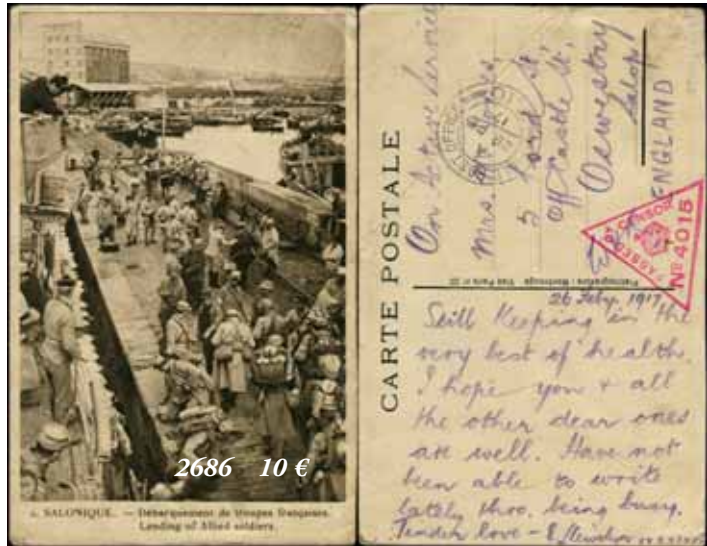 2686 10 €
2. SALONIQUE. — Débarquement de troupes françaises.
Landing of Allied soldiers.
CARTE POSTALE
On Active Service
Mrs. M.
5 Lord St,
Off Castle St.
Oswestry
Salop
ENGLAND
PASSED BY CENSOR
Nº 4015
26 Feby. 1917
Still Keeping in the
very best of health.
I hope you & all
the other dear ones
are well. Have not
been able to write
lately thro. being busy.
Tender love -